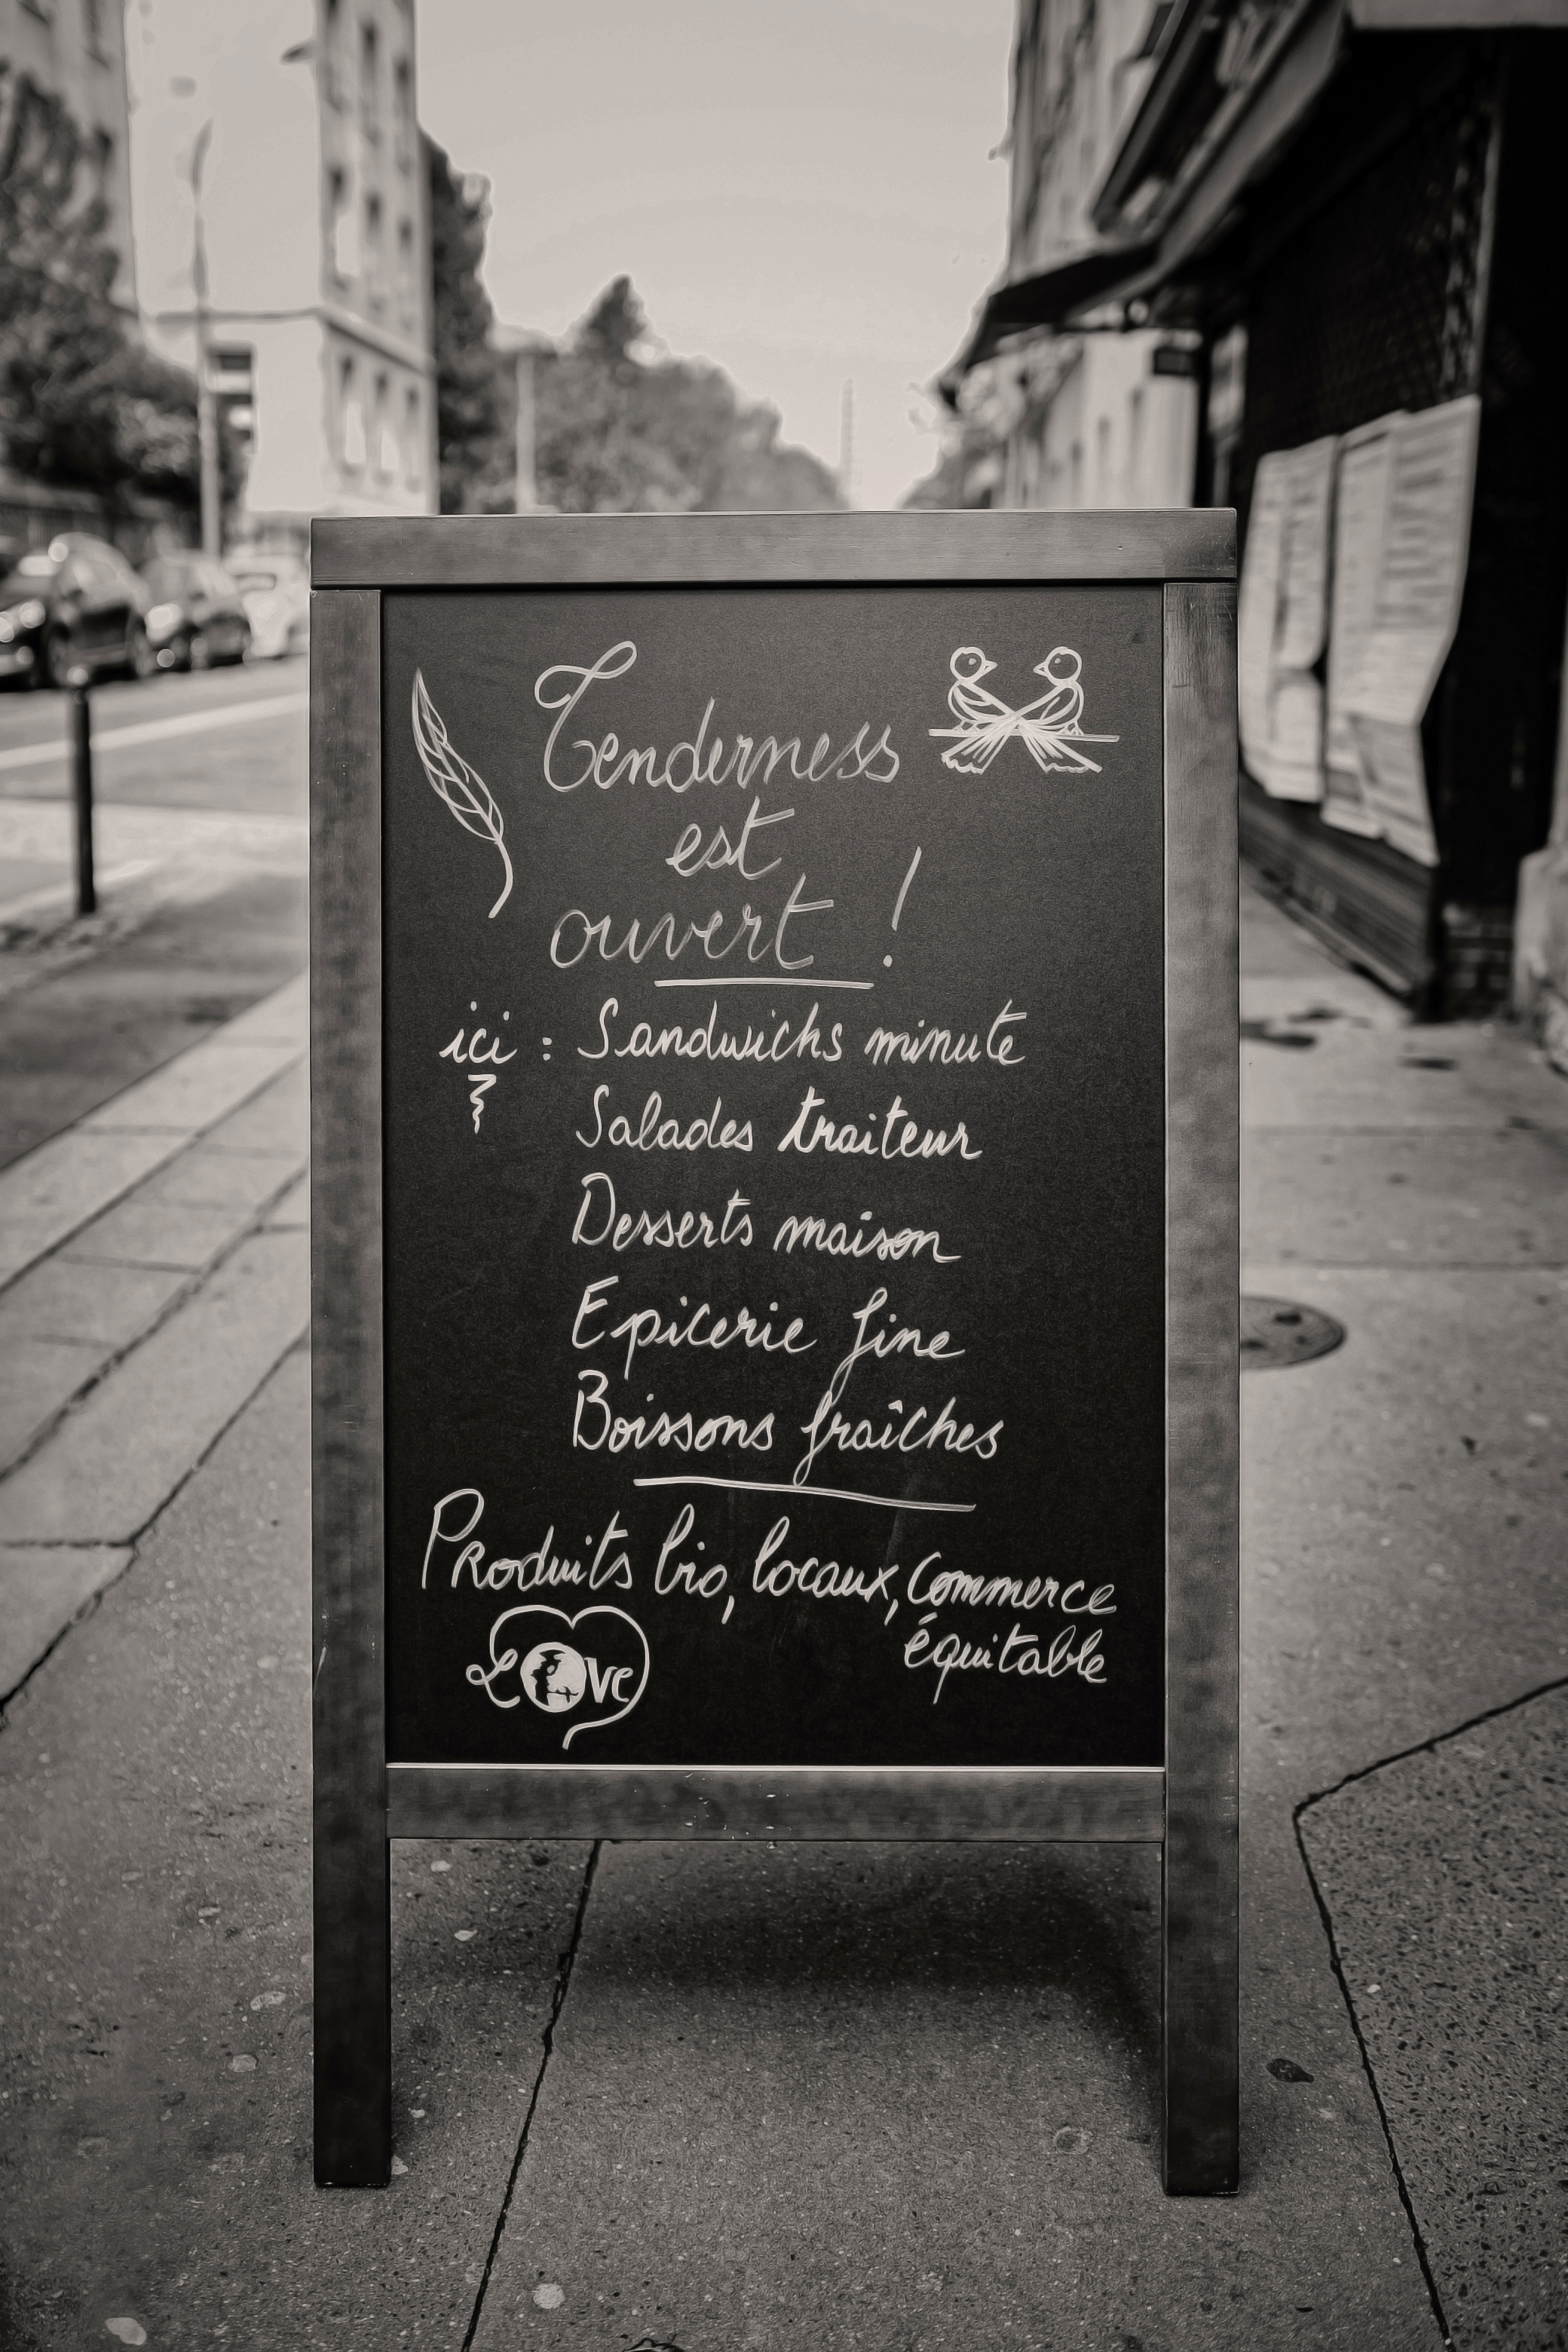 Tenderness
est
ouvert !
ici : Sandwichs minute
Salades traiteur
Desserts maison
Epicerie fine
Boissons fraîches
Produits bio, locaux, Commerce
équitable
LOVE